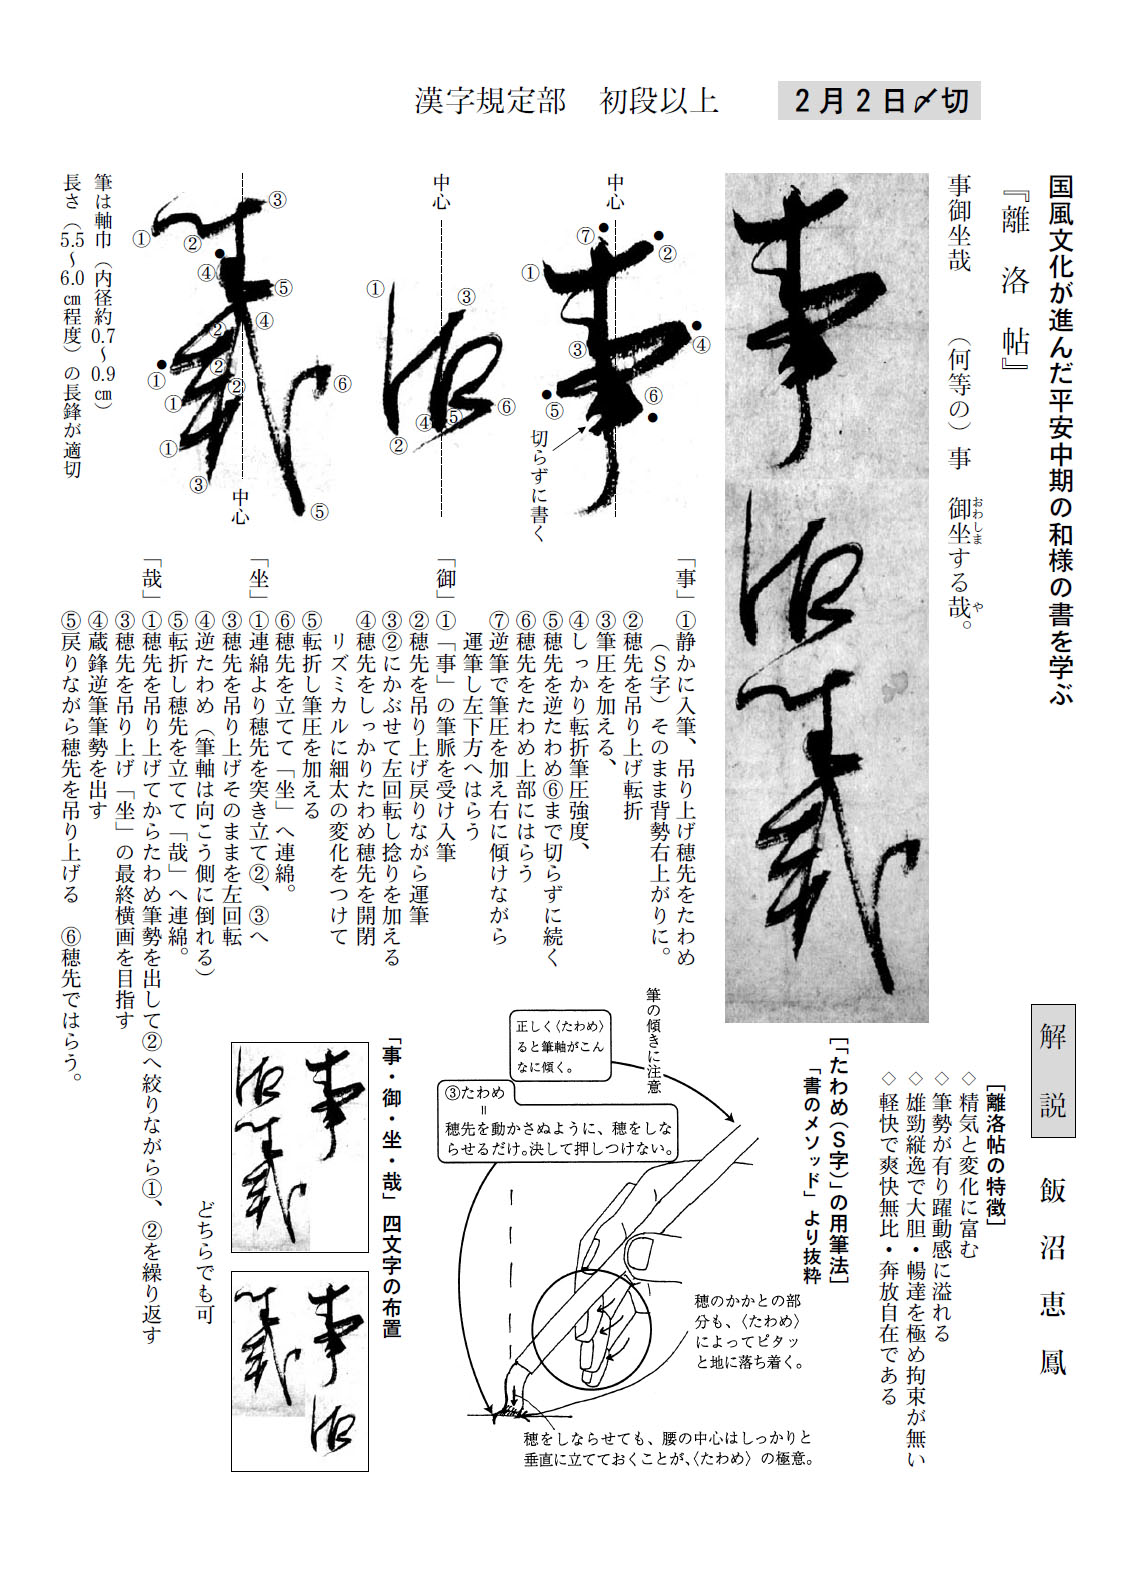 漢字規定部　初段以上
２月２日〆切
国風文化が進んだ平安中期の和様の書を学ぶ
『離洛帖』
事御坐哉　　（何等の）事　御坐する哉。
おわしま
や
解説　飯沼恵鳳
事御坐哉
中心
①
②
③
④
⑤
⑥
⑦
切らずに書く
中心
①
②
③
④
⑤
⑥
①
②
③
④
⑤
④
②
②
②
①
①
①
③
⑤
⑥
中心
筆は軸巾（内径約0.7～0.9㎝）
長さ（5.5～6.0㎝程度）の長鋒が適切
「事」①静かに入筆、吊り上げ穂先をたわめ
（Ｓ字）そのまま背勢右上がりに。
②穂先を吊り上げ転折
③筆圧を加える、
④しっかり転折筆圧強度、
⑤穂先を逆たわめ⑥まで切らずに続く
⑥穂先をたわめ上部にはらう
⑦逆筆で筆圧を加え右に傾けながら
運筆し左下方へはらう
「御」①「事」の筆脈を受け入筆
②穂先を吊り上げ戻りながら運筆
③②にかぶせて左回転し捻りを加える
④穂先をしっかりたわめ穂先を開閉
リズミカルに細太の変化をつけて
⑤転折し筆圧を加える
⑥穂先を立てて「坐」へ連綿。
「坐」①連綿より穂先を突き立て②、③へ
③穂先を吊り上げそのままを左回転
④逆たわめ（筆軸は向こう側に倒れる）
⑤転折し穂先を立てて「哉」へ連綿。
「哉」①穂先を吊り上げてからたわめ筆勢を出して②へ絞りながら①、②を繰り返す
③穂先を吊り上げ「坐」の最終横画を目指す
④蔵鋒逆筆筆勢を出す
⑤戻りながら穂先を吊り上げる　⑥穂先ではらう。
［離洛帖の特徴］
◇精気と変化に富む
◇筆勢が有り躍動感に溢れる
◇雄勁縦逸で大胆・暢達を極め拘束が無い
◇軽快で爽快無比・奔放自在である
［「たわめ（Ｓ字）」の用筆法］
「書のメソッド」より抜粋
筆の傾きに注意
正しく〈たわめ〉
ると筆軸がこん
なに傾く。
③たわめ
＝
穂先を動かさぬように、穂をしな
らせるだけ。決して押しつけない。
穂のかかとの部
分も、〈たわめ〉
によってピタッ
と地に落ち着く。
穂をしならせても、腰の中心はしっかりと
垂直に立てておくことが、〈たわめ〉の極意。
「事・御・坐・哉」四文字の布置
事
御坐哉
事御
坐哉
どちらでも可